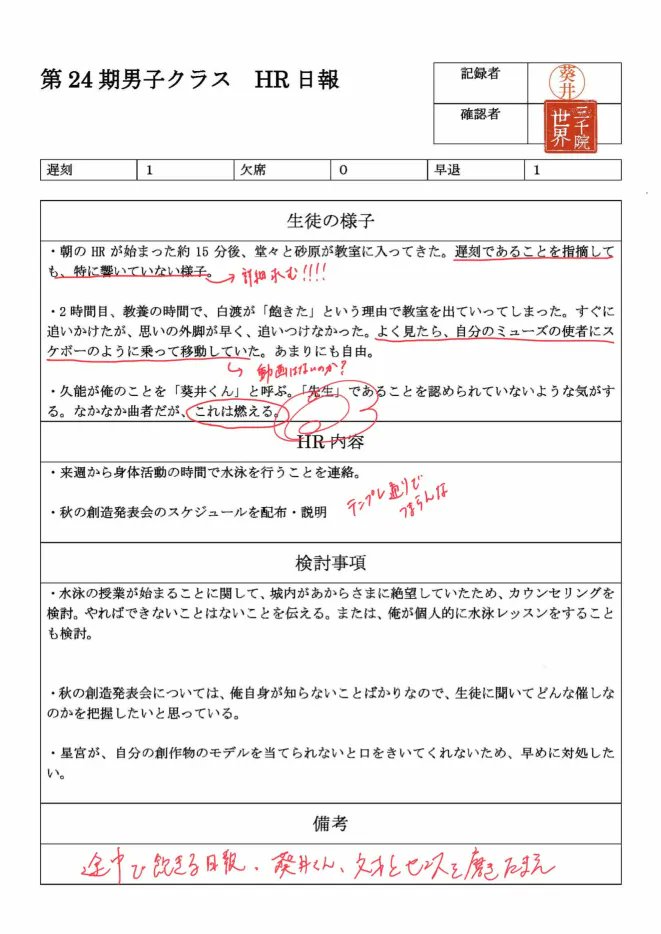 第24期男子クラス　HR日報
記録者
葵井
確認者
三千院
世界
遅刻 1 欠席 0 早退 1
生徒の様子
・朝のHRが始まった約15分後、堂々と砂原が教室に入ってきた。遅刻であることを指摘して
も、特に響いていない様子。
詳細求む!!!!
・2時間目、教養の時間で、白渡が「飽きた」という理由で教室を出ていってしまった。すぐに
追いかけたが、思いの外脚が早く、追いつけなかった。よく見たら、自分のミューズの使者にス
ケボーのように乗って移動していた。あまりにも自由。
動画はないのか?
・久能が俺のことを「葵井くん」と呼ぶ。「先生」であることを認められていないような気がす
る。なかなか曲者だが、これは燃える。
HR内容
・来週から身体活動の時間で水泳を行うことを連絡。
テンプレ通りで
つまらんな
・秋の創造発表会のスケジュールを配布・説明
検討事項
・水泳の授業が始まることに関して、城内があからさまに絶望していたため、カウンセリングを
検討。やればできないことはないことを伝える。または、俺が個人的に水泳レッスンをすること
も検討。
・秋の創造発表会については、俺自身が知らないことばかりなので、生徒に聞いてどんな催しな
のかを把握したいと思っている。
・星宮が、自分の創作物のモデルを当てられないと口をきいてくれないため、早めに対処した
い。
備考
途中で飽きる日報。葵井くん、文才とセンスを磨きたまえ